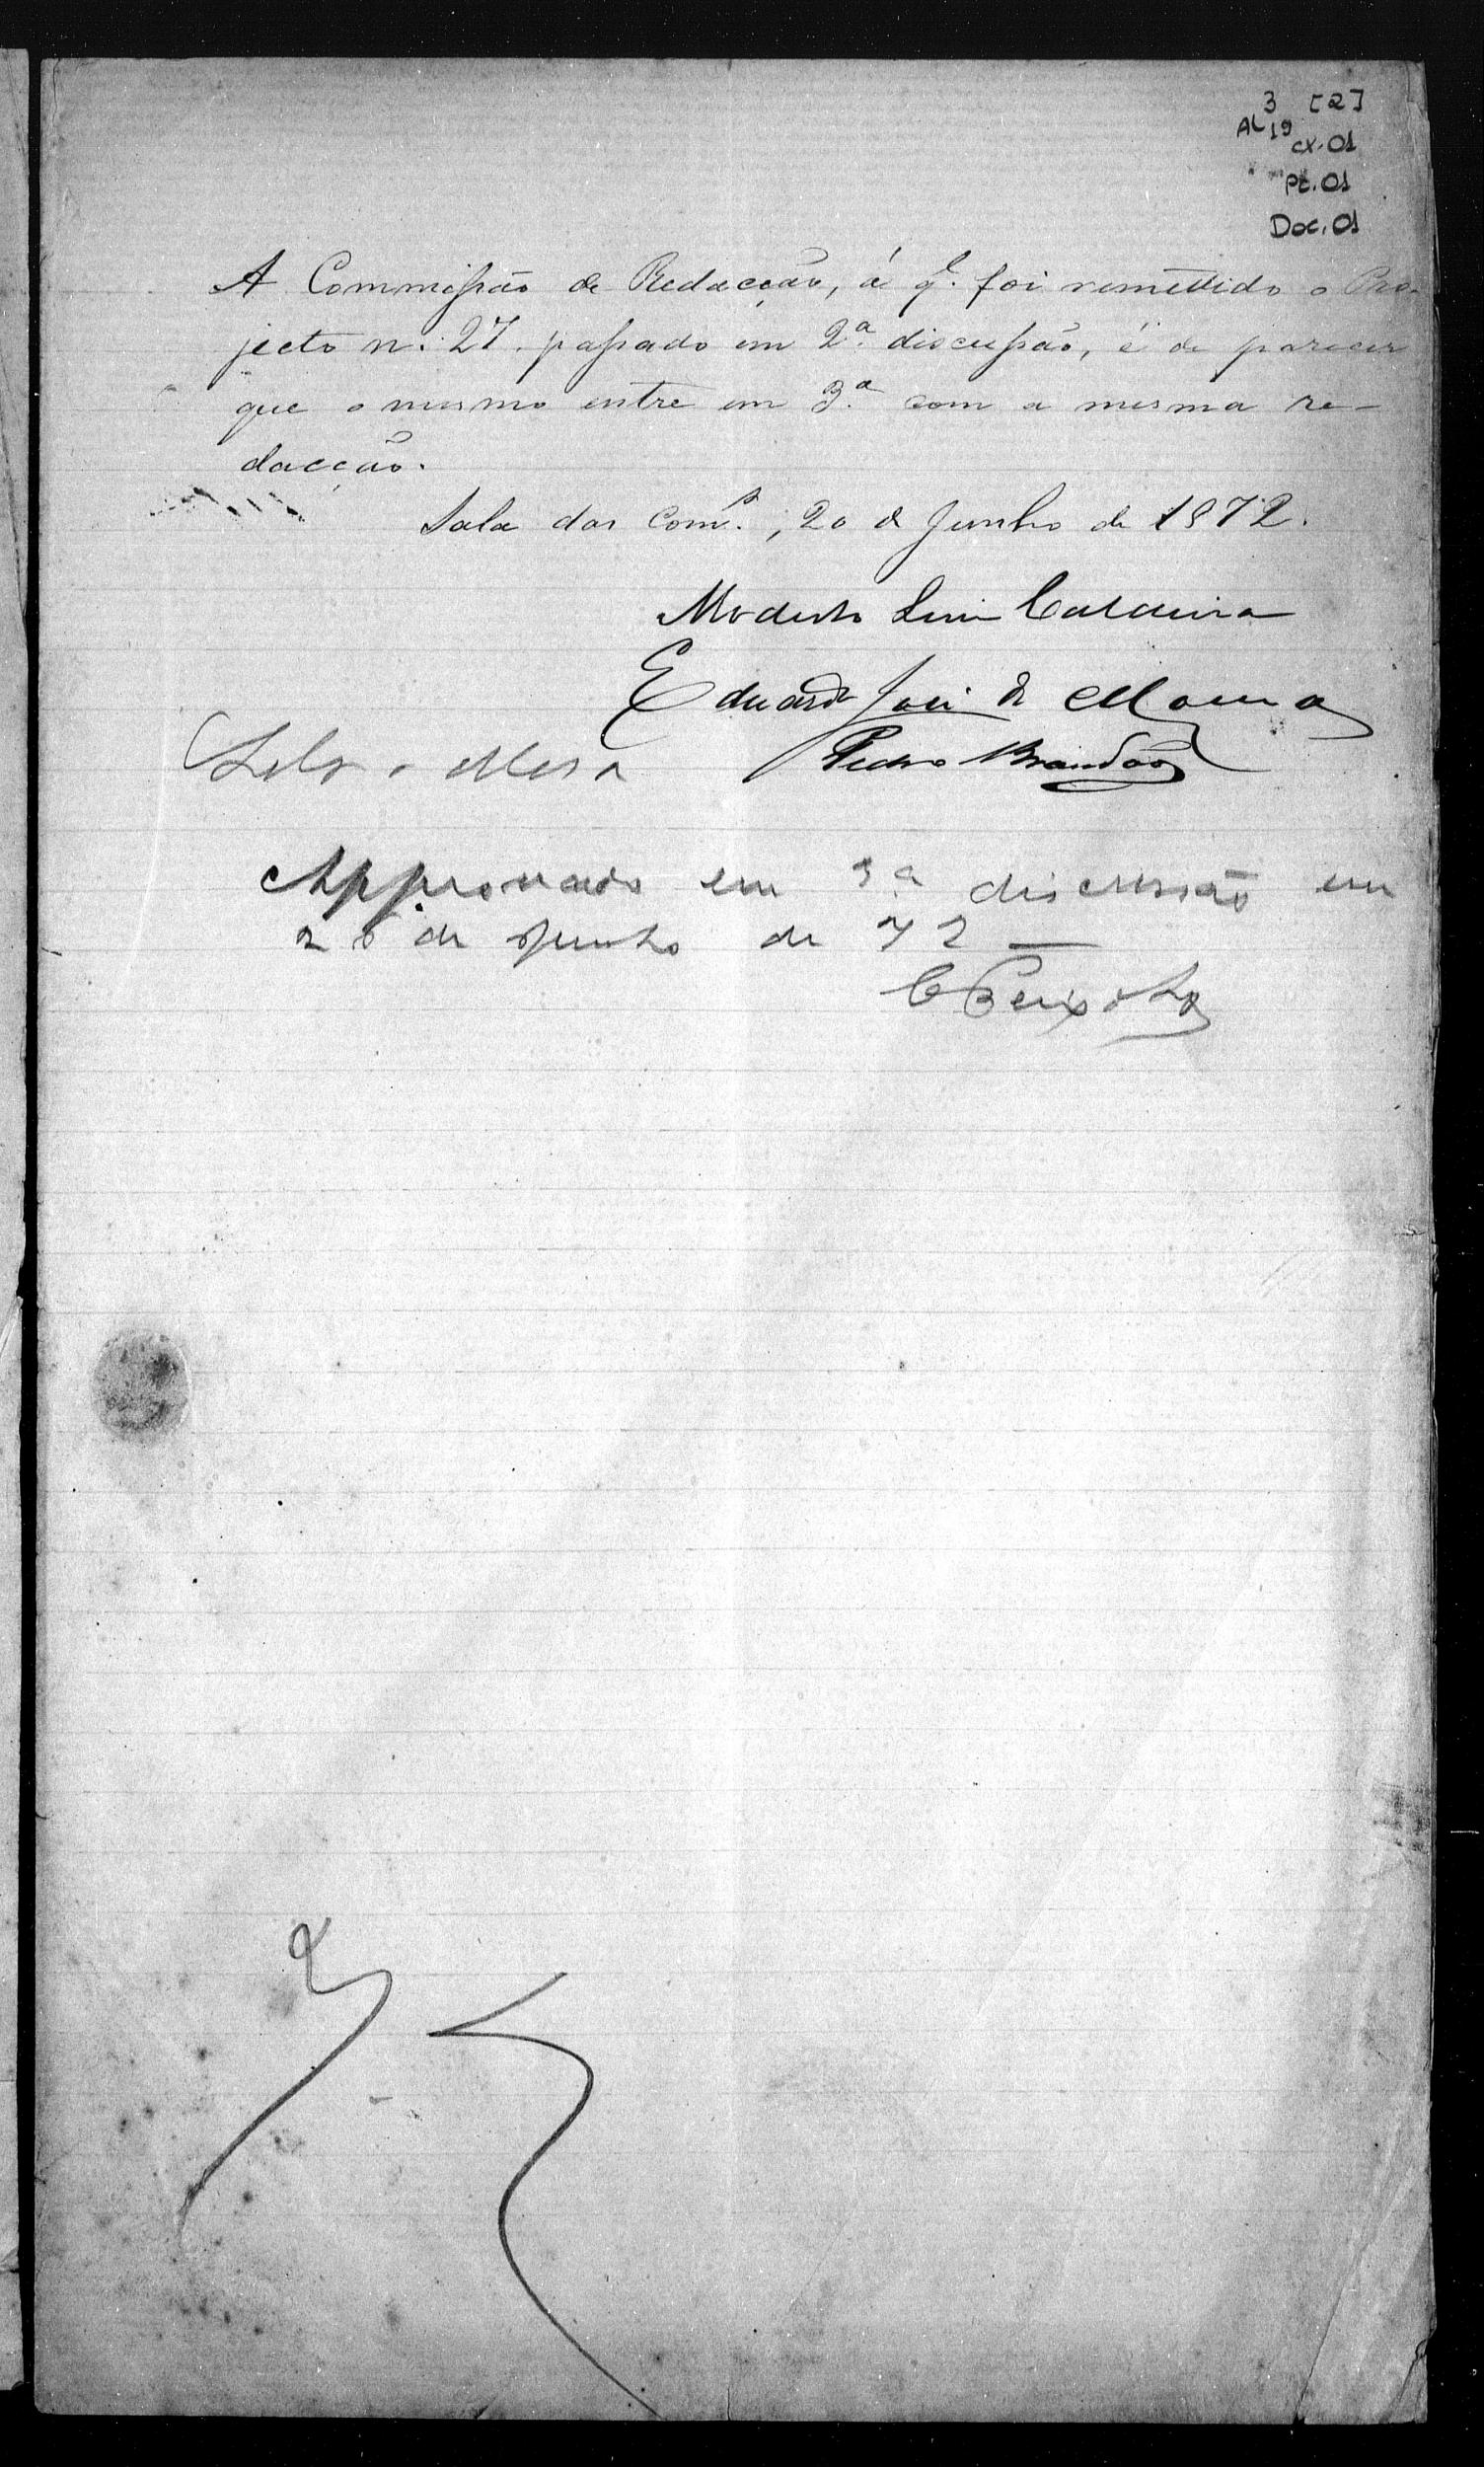 3 [2]
AL 19
cx. 01
Pt. 01
Doc. 01
A Commissão de Redacção, á q.l foi remettido o Pro-
jecto n.º 27 passado em 2.ª discussão, é de parecer
que o mesmo entre em 3.ª com a mesma re-
dacção.
Sala das Com.s, 20 de Junho de 1872.
Modesto Luiz Caldeira
Eduardo José de Moura
Pedro Brandão
Approvado em 3ª discussão em
de Junho de 72
C Peixoto